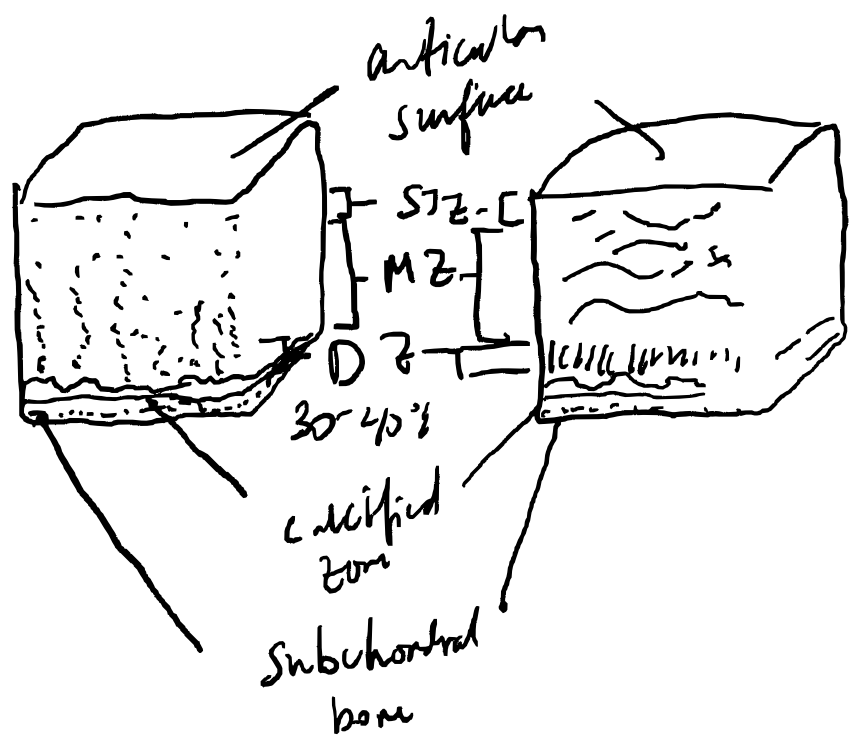 articular
surface
STZ
MZ
DZ
30-40%
calcified
zone
subchondral
bone